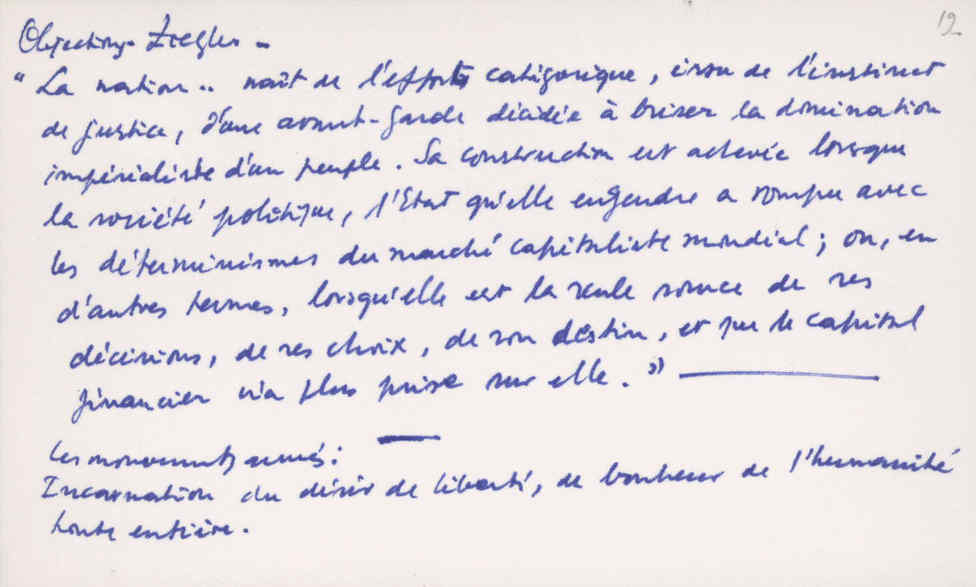 12
Objections Ziegler –
"La nation.. naît de l'effort catégorique, issu de l'instinct
de justice, d'une avant-garde décidée à briser la domination
impérialiste d'un peuple. Sa construction est achevée lorsque
la société politique, l'Etat qu'elle engendre a rompu avec
les déterminismes du marché capitaliste mondial; ou, en
d'autres termes, lorsqu'elle est la seule source de ses
décisions, de ses choix, de son destin, et que le capital
financier n'a plus prise sur elle."
Les mouvements armés:
Incarnation du désir de liberté, de bonheur de l'humanité
toute entière.